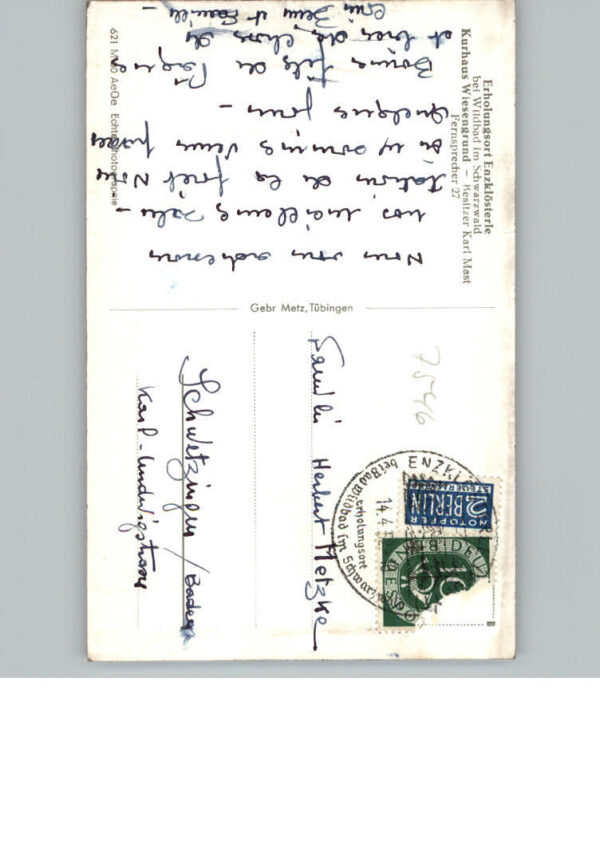 Erholungsort Enzklösterle
bei Wildbad im Schwarzwald
Kurhaus Wiesengrund – Besitzer Karl Mast
Fernsprecher 27
Nous vous adressons
nos meilleures Salu-
tations de la forêt Noire
où sommes venus passer
quelques jours –
Bonnes fêtes de Pâques
et bien des choses de
et Famille –
621 Echte Photographie
Gebr Metz, Tübingen
7546
ENZKLÖSTERLE
Erholungsort
bei Bad Wildbad im Schwarzwald
14.4.
NOTOPFER
2 BERLIN
STEUERMARKE
10
Familie Herbert Metzke
Schwetzingen / Baden
Karl-Ludwigstrasse
B